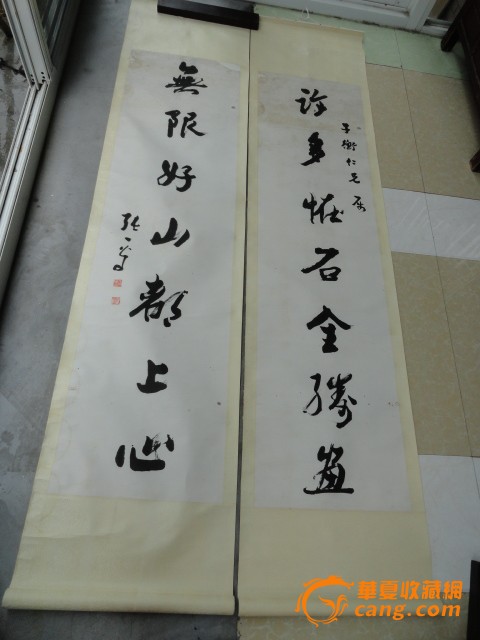 許多恠石全勝畫
子衡仁兄屬
無限好山都上心
張一麐
華夏收藏網
cang.com